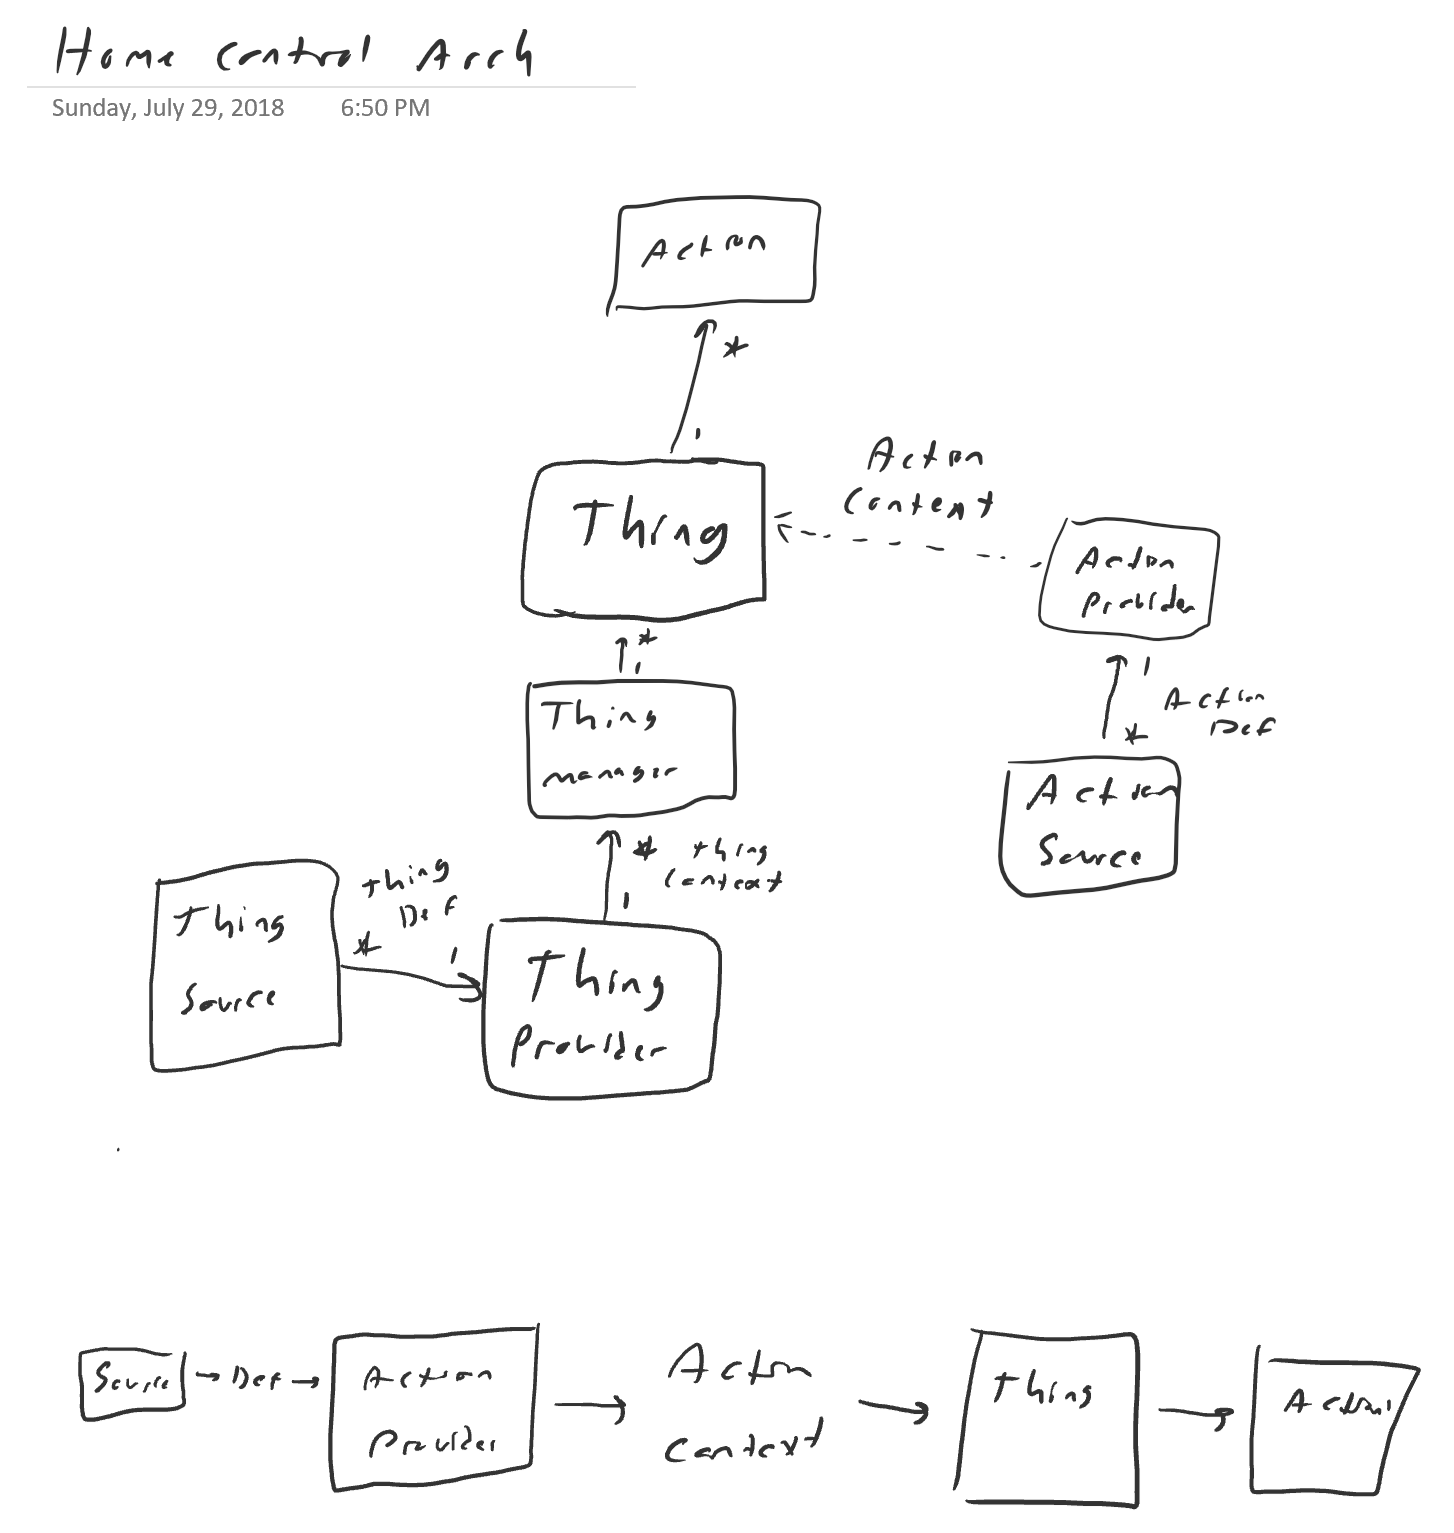 Home Control Arch
Sunday, July 29, 2018 6:50 PM
Action
*
1
Thing
Action
Context
Action
Provider
*
1
1
Action
Def
*
Thing
manager
Action
Source
*
Thing
Context
1
Thing
Def
*
1
Thing
Source
Thing
Provider
Source
Def
Action
Provider
Action
Context
Thing
Action